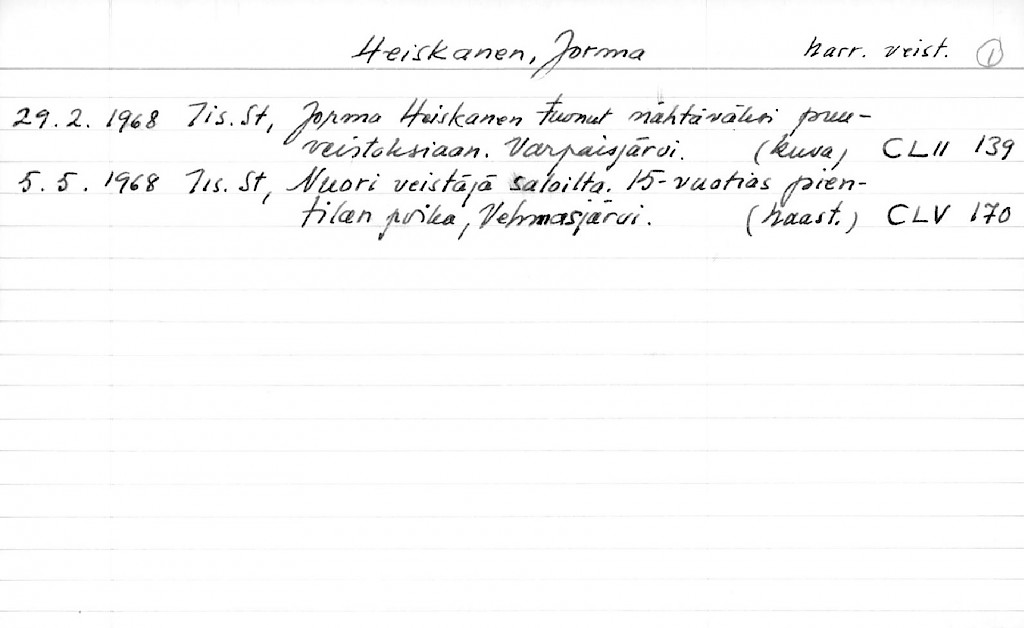 Heiskanen, Jorma harr. veist. 1
29.2. 1968 Iis. St, Jorma Heiskanen tuonut nähtäväksi puu-
veistoksiaan. Varpaisjärvi. (kuva) CLII 139
5.5. 1968 Iis. St, Nuori veistäjä saloilta. 15-vuotias pien-
tilan poika, Vehmasjärvi. (haast.) CLV 170